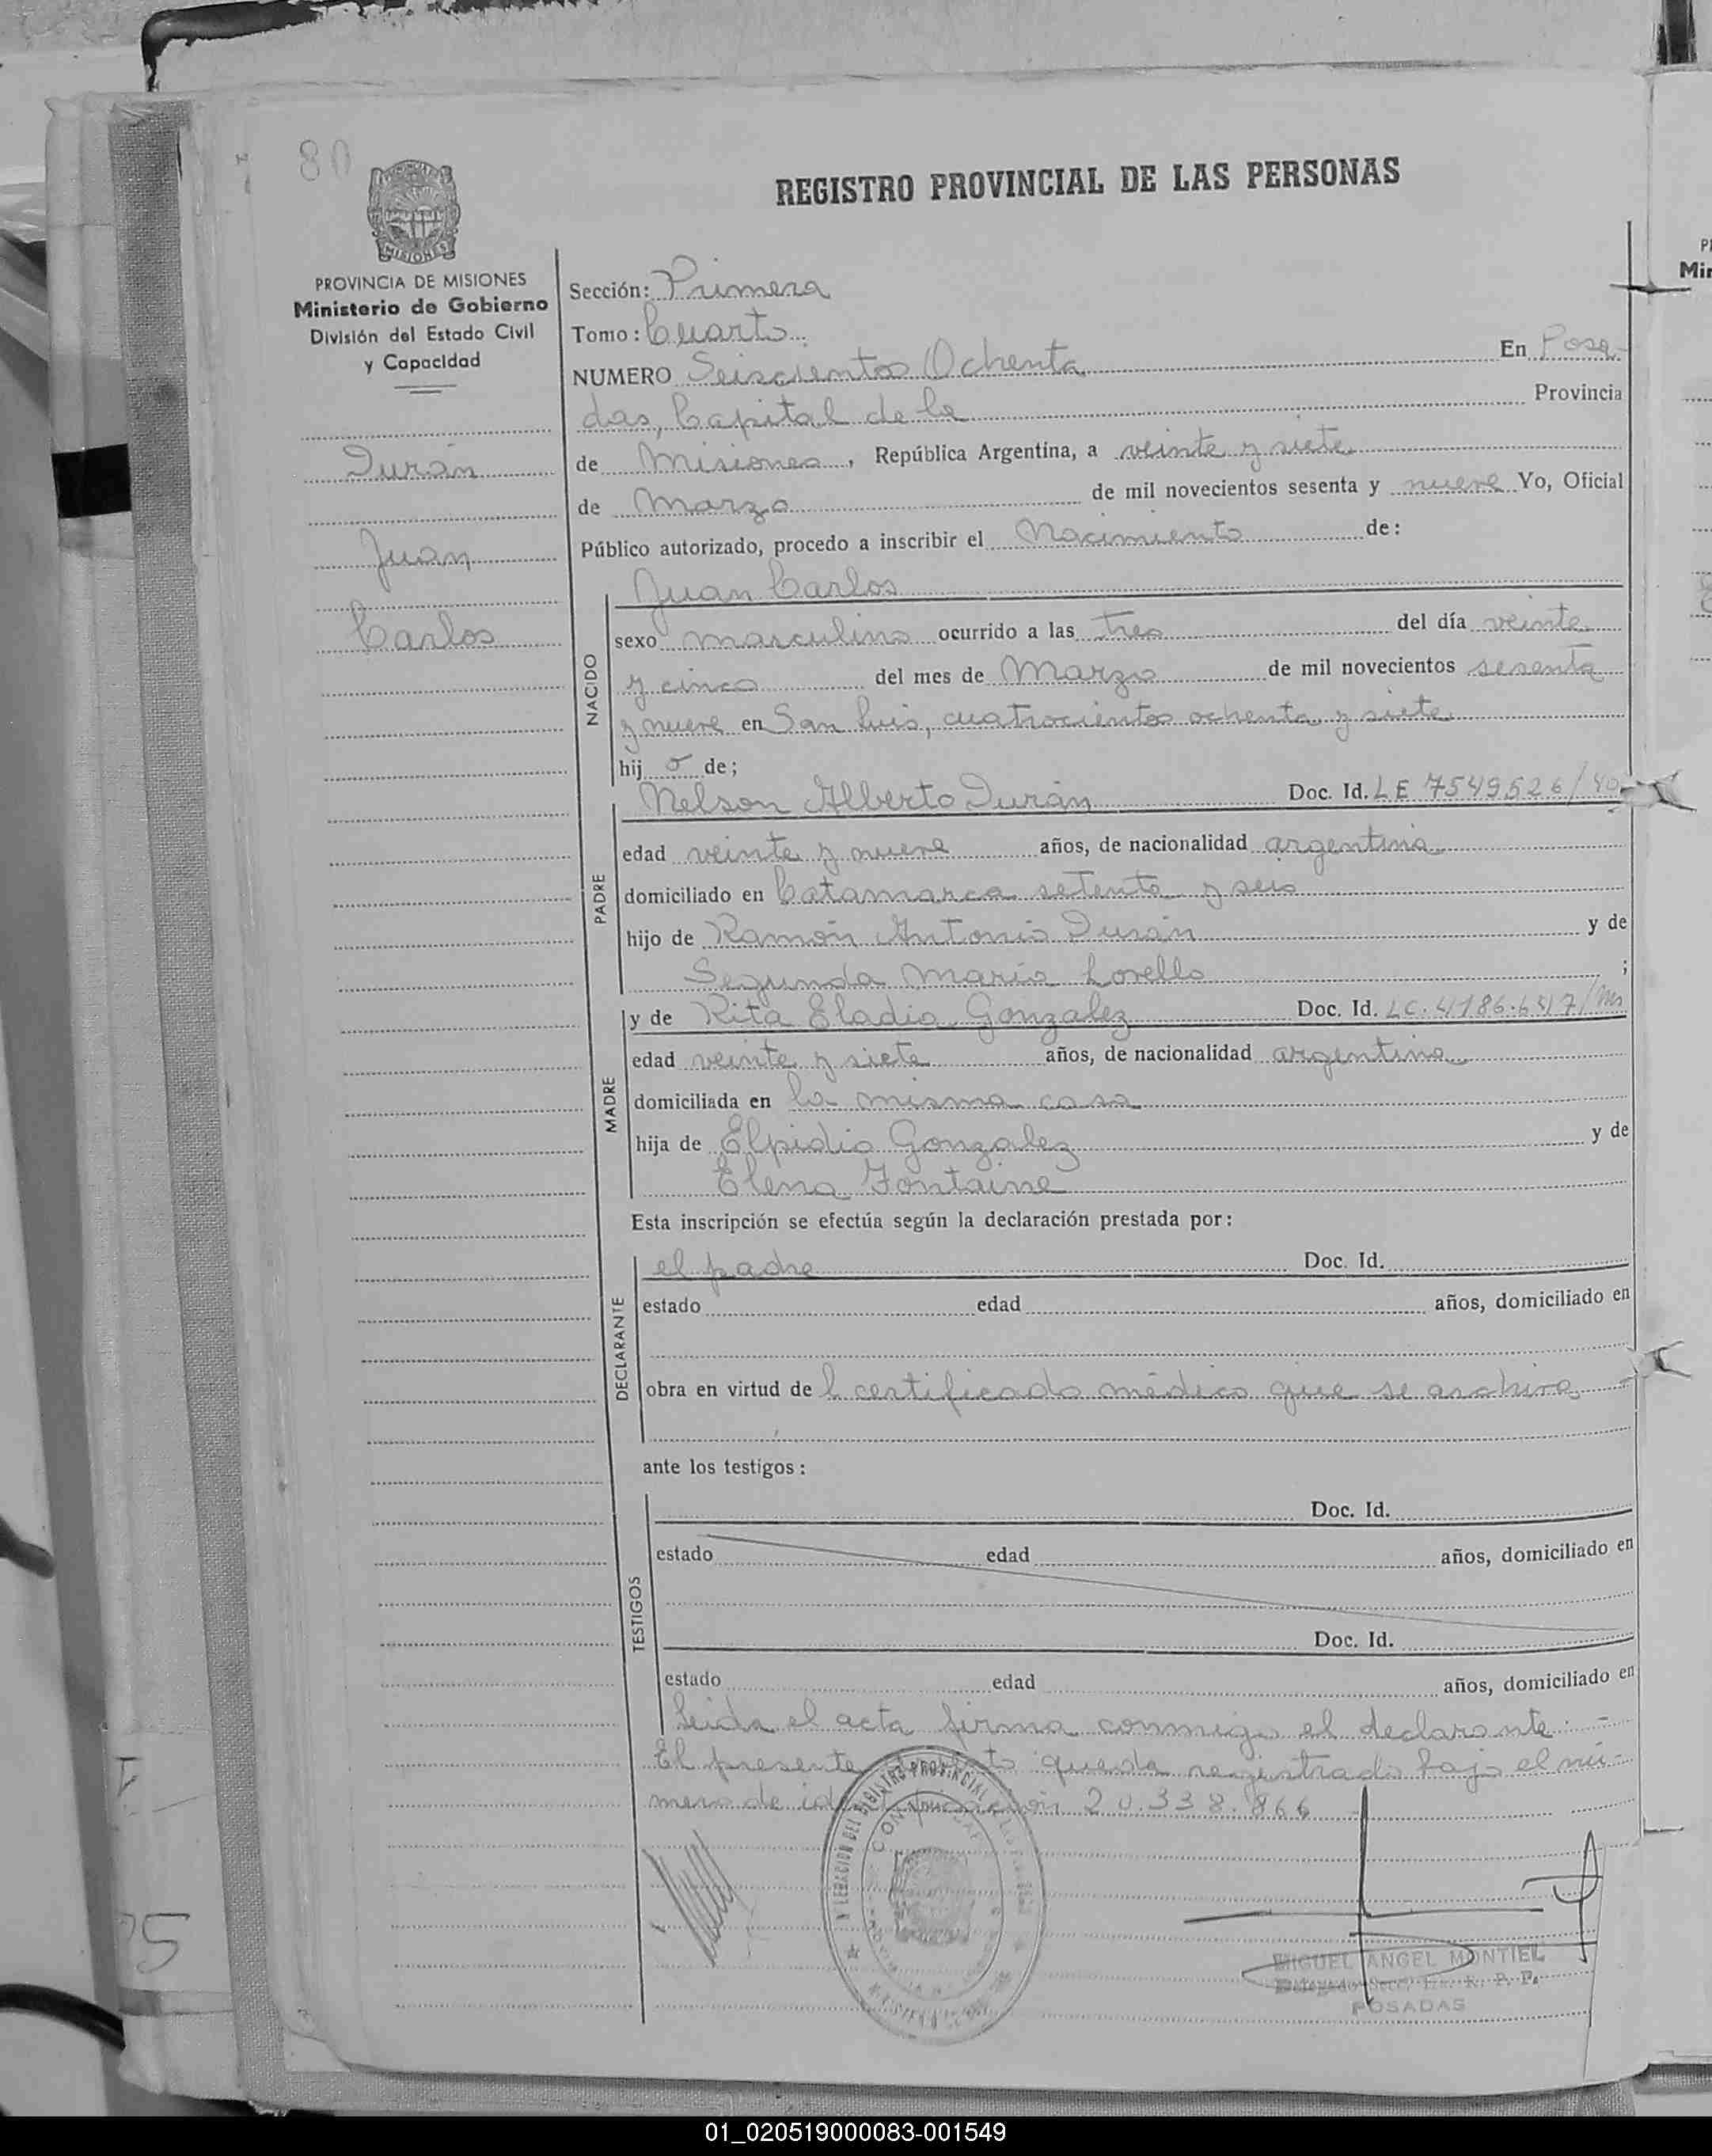 80
REGISTRO PROVINCIAL DE LAS PERSONAS
MISIONES
PROVINCIA DE MISIONES
Ministerio de Gobierno
División del Estado Civil
y Capacidad
Durán
Juan
Carlos
Sección: Primera
Tomo: Cuarto
NUMERO Seiscientos Ochenta En Posa-
das, Capital de la Provincia
de Misiones, República Argentina, a veinte y siete
de Marzo de mil novecientos sesenta y nueve Yo, Oficial
Público autorizado, procedo a inscribir el Nacimiento de:
NACIDO
Juan Carlos
sexo masculino ocurrido a las tres del día veinte
y cinco del mes de Marzo de mil novecientos sesenta
y nueve en San Luis, cuatrocientos ochenta y siete
hij o de;
PADRE
Nelson Alberto Durán Doc. Id. LE 7549526/40
edad veinte y nueve años, de nacionalidad argentina
domiciliado en Catamarca setenta y seis
hijo de Ramón Antonio Durán y de
Segunda María Lovello ;
MADRE
y de Rita Eladia Gonzalez Doc. Id. LC. 4186.647/Ms
edad veinte y siete años, de nacionalidad argentina
domiciliada en la misma casa
hija de Elpidio Gonzalez y de
Elena Fontaine
Esta inscripción se efectúa según la declaración prestada por:
DECLARANTE
el padre Doc. Id.
estado edad años, domiciliado en
obra en virtud de l certificado médico que se archiva
ante los testigos:
TESTIGOS
Doc. Id.
estado edad años, domiciliado en
Doc. Id.
estado edad años, domiciliado en
Leida el acta firma conmigo el declarante
El presente queda registrado bajo el nú-
mero de 20.338.866
MIGUEL ANGEL MONTIEL
POSADAS
25
Min
01_020519000083-001549